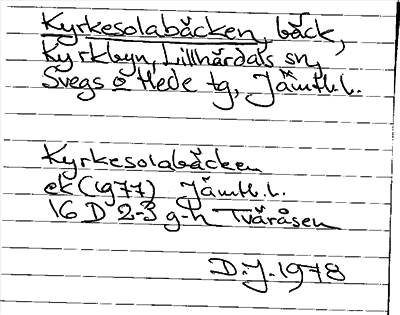 Kyrkesolabäcken, bäck,
Kyrkbyn, Lillhärdals sn,
Svegs o Hede tg, Jämtl.l.
Kyrkesolabäcken
ek (1977) Jämtl.l.
16 D 2-3 g-h Tvåråsen
D.J. 1978